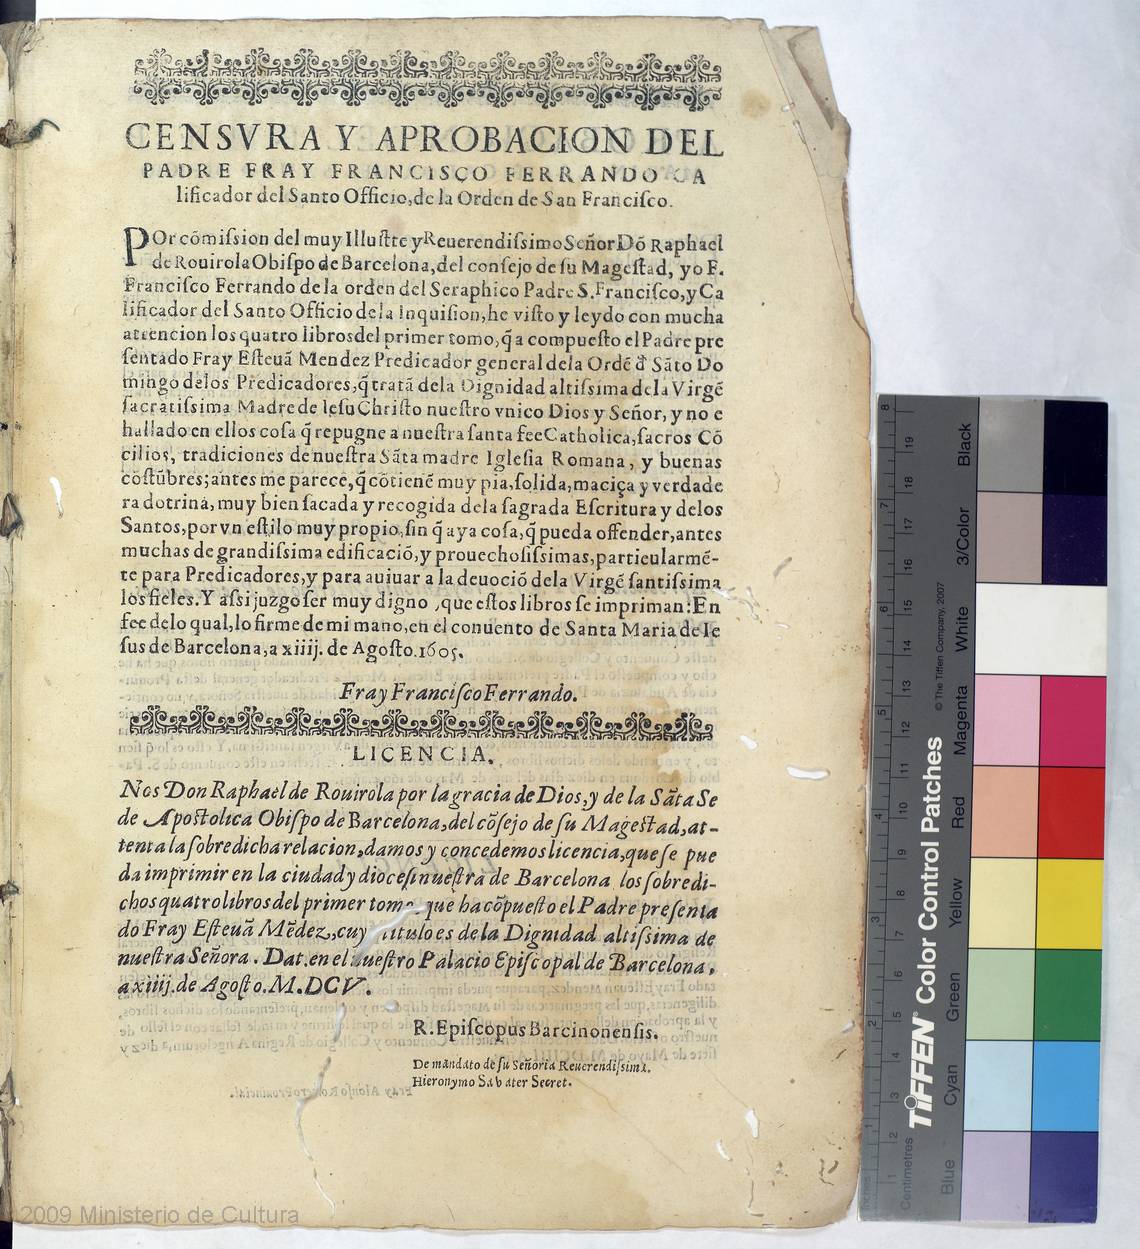 CENSVRA Y APROBACION DEL
PADRE FRAY FRANCISCO FERRANDO CA
lificador del Santo Officio,de la Orden de San Franciſco.
POr cõmiſsion del muy Illuſtre y Reuerendiſsimo Señor Dõ Raphael
de Rouirola Obiſpo de Barcelona,del conſejo de ſu Mageſtad, yo F.
Franciſco Ferrando de la orden del Seraphico Padre S.Franciſco,y Ca
lificador del Santo Officio de la Inquiſion,he viſto y leydo con mucha
attencion los quatro libros del primer tomo,q̃ a compueſto el Padre pre
ſentado Fray Eſteuã Mendez Predicador general de la Ordẽ đ Sãto Do
mingo delos Predicadores,q̃ tratã dela Dignidad altiſsima dela Virgẽ
ſacratiſsima Madre de Ieſu Chriſto nueſtro vnico Dios y Señor, y no e
hallado en ellos coſa q̃ repugne a nueſtra ſanta fee Catholica,ſacros Cõ
cilios, tradiciones de nueſtra Sãta madre Igleſia Romana, y buenas
coſtũbres;antes me parece,q̃ cõtienẽ muy pia,ſolida,maciça y verdade
ra dotrina, muy bien ſacada y recogida dela ſagrada Eſcritura y delos
Santos,por vn eſtilo muy propio,ſin q̃ aya coſa,q̃ pueda offender,antes
muchas de grandiſsima edificaciõ,y prouechoſiſsimas,particularmẽ-
te para Predicadores,y para auiuar a la deuociõ dela Virgẽ ſantiſsima
los fieles. Y aſsi juzgo ſer muy digno ,que eſtos libros ſe impriman: En
fee delo qual,lo firme de mi mano,en el conuento de Santa Maria de Ie
ſus de Barcelona,a xiiij. de Agoſto.1605.
Fray Franciſco Ferrando.
LICENCIA.
Nos Don Raphael de Rouirola por la gracia de Dios,y de la Sãta Se
de Apoſtolica Obiſpo de Barcelona,del cõſejo de ſu Mageſtad,at-
tenta la ſobredicha relacion,damos y concedemos licencia,que ſe pue
da imprimir en la ciudad y dioceſi nueſtra de Barcelona los ſobredi-
chos quatro libros del primer tomo que ha cõpueſto el Padre preſenta
do Fray Eſteuã Mẽdez,cuyo titulo es de la Dignidad altiſsima de
nueſtra Señora. Dat.en el nueſtro Palacio Epiſcopal de Barcelona,
a xiiij.de Agoſto.M.DCV.
R. Epiſcopus Barcinonenſis.
De mãndato de ſu Señoria Reuerendiſsima,
Hieronymo Sabater Secret.
2009 Ministerio de Cultura
TIFFEN® Color Control Patches
© The Tiffen Company, 2007
Centimetres
Blue Cyan Green Yellow Red Magenta White 3/Color Black
1 2 3 4 5 6 7 8 9 10 11 12 13 14 15 16 17 18 19
1 2 3 4 5 6 7 8